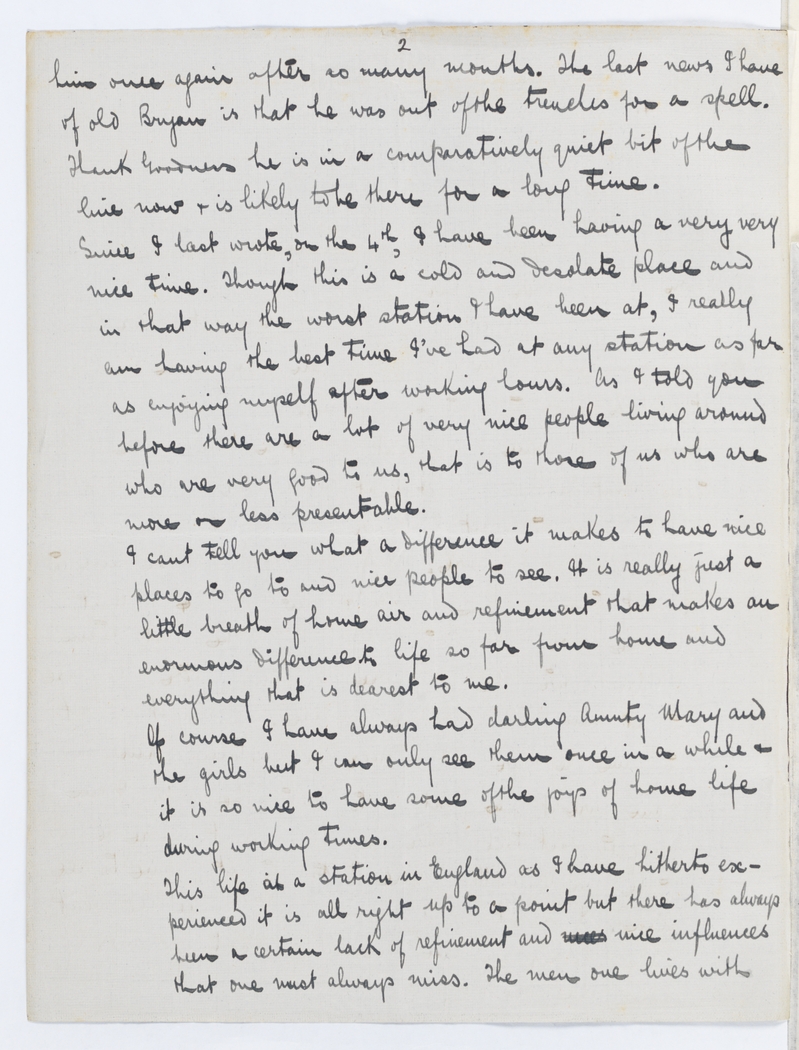 2
him once again after so many months. The last news I have
of old Bryan is that he was out of the trenches for a spell.
Thank Goodness he is in a comparatively quiet bit of the
line now + is likely to be there for a long time.
Since I last wrote, on the 4th, I have been having a very very
nice time. Though this is a cold and desolate place and
in that way the worst station I have been at, I really
am having the best time I've had at any station as far
as enjoying myself after working hours. As I told you
before there are a lot of very nice people living around
who are very good to us, that is to those of us who are
more or less presentable.
I cant tell you what a difference it makes to have nice
places to go to and nice people to see. It is really just a
little breath of home air and refinement that makes an
enormous difference to life so far from home and
everything that is dearest to me.
Of course I have always had darling Aunty Mary and
the girls but I can only see them once in a while +
it is so nice to have some of the joys of home life
during working times.
This life at a station in England as I have hitherto ex-
perienced it is all right up to a point but there has always
been a certain lack of refinement and nice influences
that one must always miss. The men one lives with